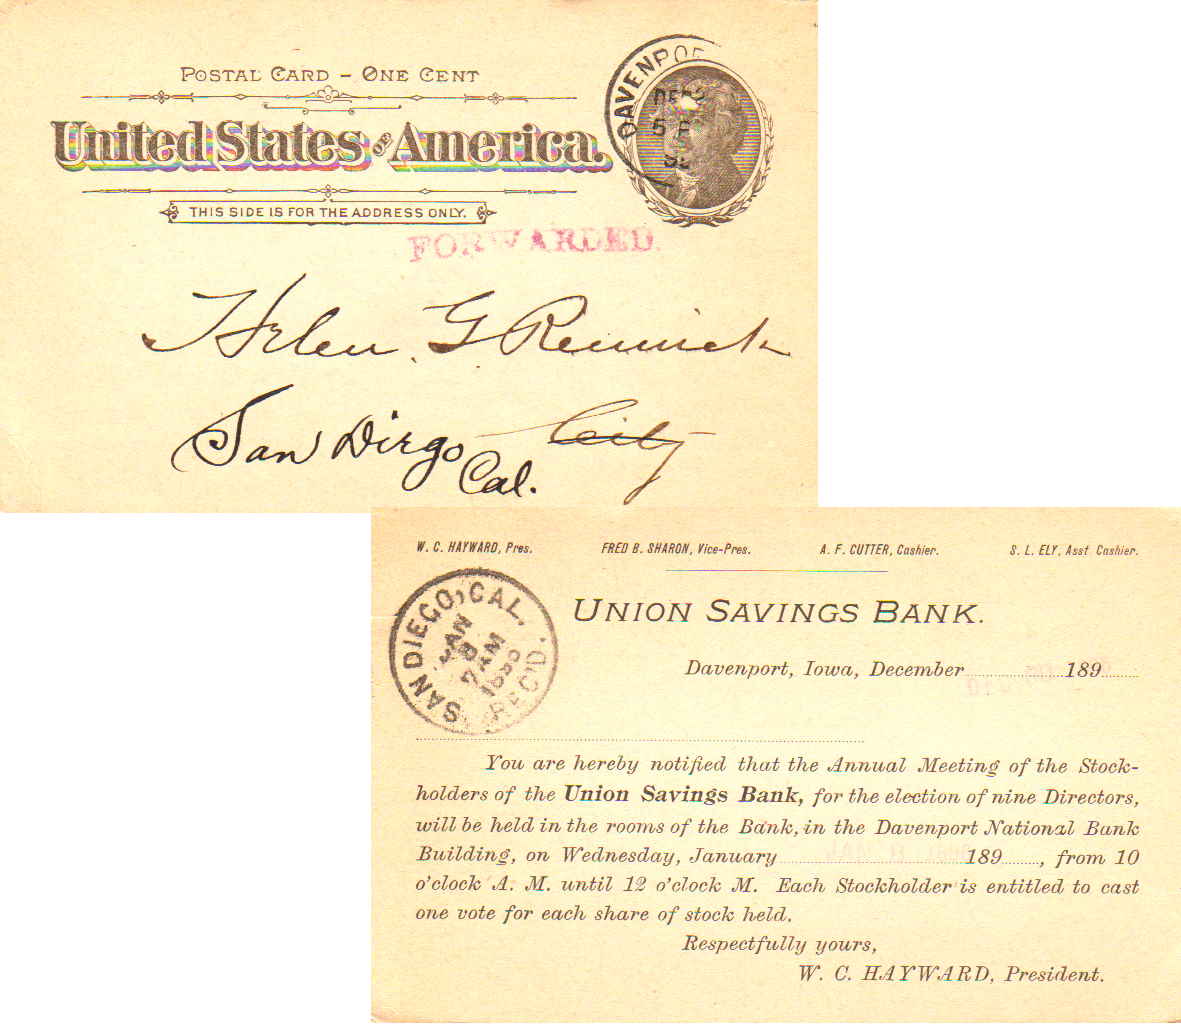 POSTAL CARD – ONE CENT
United States OF America.
THIS SIDE IS FOR THE ADDRESS ONLY.
FORWARDED.
Helen G Renwick
San Diego City
Cal.
W. C. HAYWARD, Pres. FRED B. SHARON, Vice-Pres. A. F. CUTTER, Cashier. S. L. ELY, Asst Cashier.
SAN DIEGO, CAL.
JAN
8
7 AM
REC'D.
UNION SAVINGS BANK.
Davenport, Iowa, December 189
You are hereby notified that the Annual Meeting of the Stock-
holders of the Union Savings Bank, for the election of nine Directors,
will be held in the rooms of the Bank, in the Davenport National Bank
Building, on Wednesday, January 189 , from 10
o'clock A. M. until 12 o'clock M. Each Stockholder is entitled to cast
one vote for each share of stock held.
Respectfully yours,
W. C. HAYWARD, President.